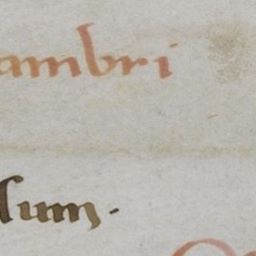 ambri
sum.